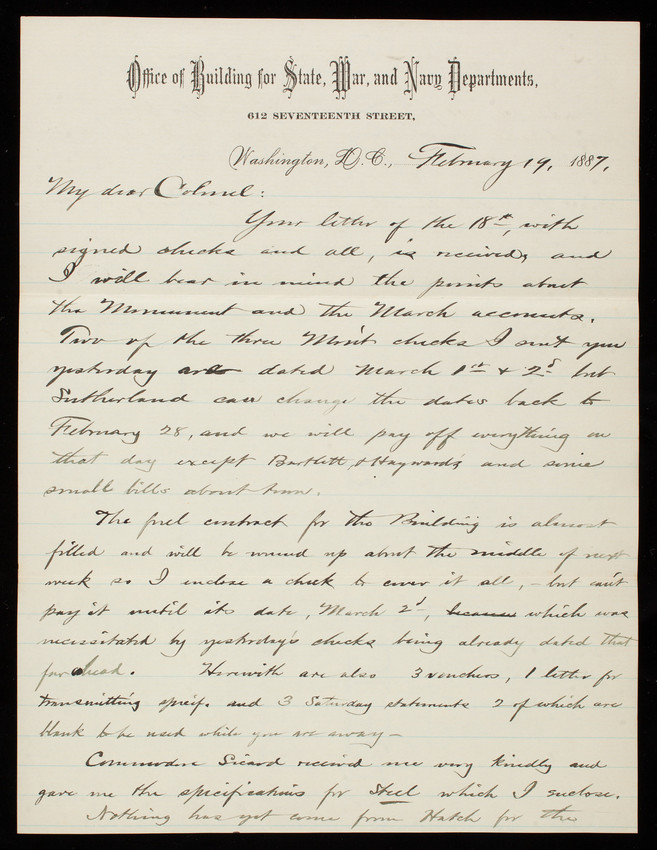 Office of Building for State, War, and Navy Departments,
612 SEVENTEENTH STREET,
Washington, D.C., February 19, 1887.
My dear Colonel:
Your letter of the 18th, with
signed checks and all, is received, and
I will bear in mind the points about
the Monument and the March accounts.
Two of the three Mon't checks I sent you
yesterday are dated March 1st & 2d but
Sutherland can change the dates back to
February 28, and we will pay off everything on
that day except Bartlett, & Haywards and some
small bills about town.
The fuel contract for the Building is almost
filled and will be wound up about the middle of next
week so I enclose a check to cover it all, - but can't
pay it until its date, March 2d, because which was
necessitated by yesterday's checks being already dated that
far ahead. Herewith are also 3 vouchers, 1 letter for
transmitting specif. and 3 Saturday statements 2 of which are
blank to be used while you are away -
Commodore Sicard received me very kindly and
gave me the specifications for Steel which I enclose.
Nothing has yet come from Hatch for the